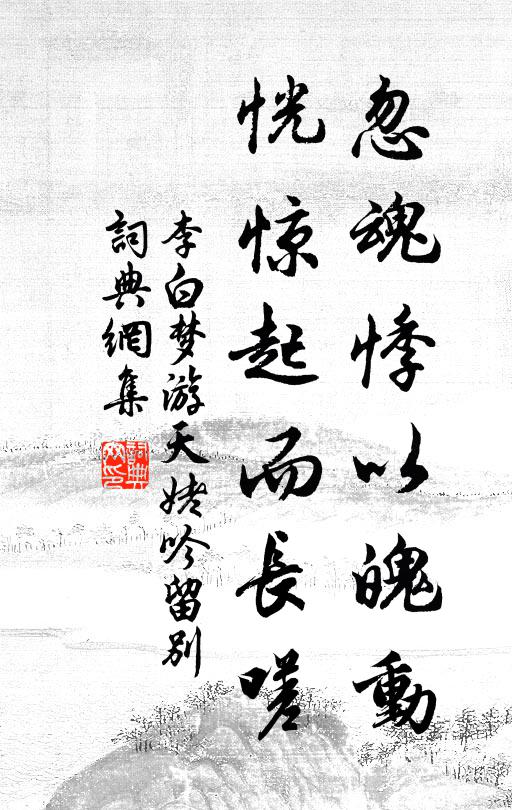 忽魂悸以魄動
恍惊起而長嗟
李白梦游天姥吟留别
詞典網集